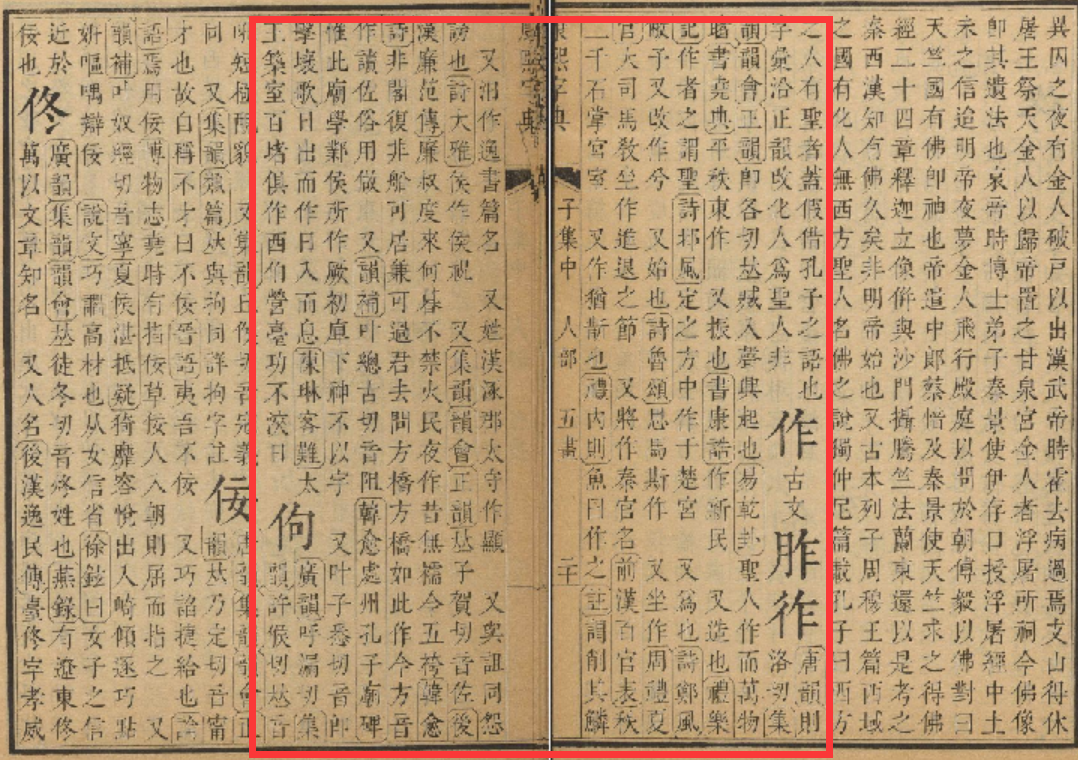 異囚之夜有金人破戸以出漢武帝時霍去病過焉支山得休
屠王祭天金人以歸帝置之甘泉宮金人者浮屠所祠今佛像
卽其遺法也哀帝時博士弟子秦景使伊存口授浮屠經中土
未之信迨明帝夜夢金人飛行殿庭以問於朝傅毅以佛對曰
天竺國有佛卽神也帝遣中郎蔡愔及秦景使天竺求之得佛
經二十四章釋迦立像倂與沙門攝騰竺法蘭東還以是考之
秦西漢知有佛久矣非明帝始也又古本列子周穆王篇西域
之國有化人無西方聖人名佛之說獨仲尼篇載孔子曰西方
之人有聖者蓋假借孔子之語也
字彙沿正韻改化人爲聖人非
作 古文 胙 𢓓 唐韻則
洛切集
韻韻會正韻卽各切𠀤臧入聲興起也易乾卦聖人作而萬物
睹書堯典平秩東作 又振也書康誥作新民 又造也禮樂
記作者之謂聖詩鄘風定之方中作于楚宮 又爲也詩鄭風
敝予又改作兮 又始也詩魯頌思馬斯作 又坐作周禮夏
官大司馬敎坐作進退之節 又將作秦官名前漢百官表秩
二千石掌宮室 又作猶斮也禮內則魚曰作之註謂削其鱗
康熙字典 子集中 人部 五畫 二十
又汨作逸書篇名 又姓漢涿郡太守作顯 又與詛同怨
謗也詩大雅侯作侯祝 又集韻韻會正韻𠀤子賀切音佐後
漢廉范傳廉叔度來何暮不禁火民夜作昔無襦今五袴韓愈
詩非閣復非船可居兼可過君去問方橋方橋如此作今方音
作讀佐俗用做 又韻補叶總古切音阻韓愈處州孔子廟碑
惟此廟學鄴侯所作厥初庳下神不以宇 又叶子悉切音卽
擊壤歌日出而作日入而息陳琳客難太
王築室百堵俱作西伯營臺功不浹日
佝 廣韻呼漏切集
韻許候切𠀤音
貌 又集韻
同 又集韻類篇𠀤與拘同詳拘字註
佞 集韻韻會正
韻𠀤乃定切音甯
才也故自稱不才曰不佞晉語夷吾不佞 又巧諂捷給也論
語焉用佞博物志堯時有指佞草佞人入朝則屈而指之 又
韻補叶奴經切音寧夏侯湛抵疑猗靡容悅出入崎傾逐巧點
姸嘔喁辯佞 說文巧讇高材也从女信省徐鉉曰女子之信
近於
佞也
佟 廣韻集韻韻會𠀤徒冬切音疼姓也燕錄有遼東佟
萬以文章知名 又人名後漢逸民傳臺佟字孝威